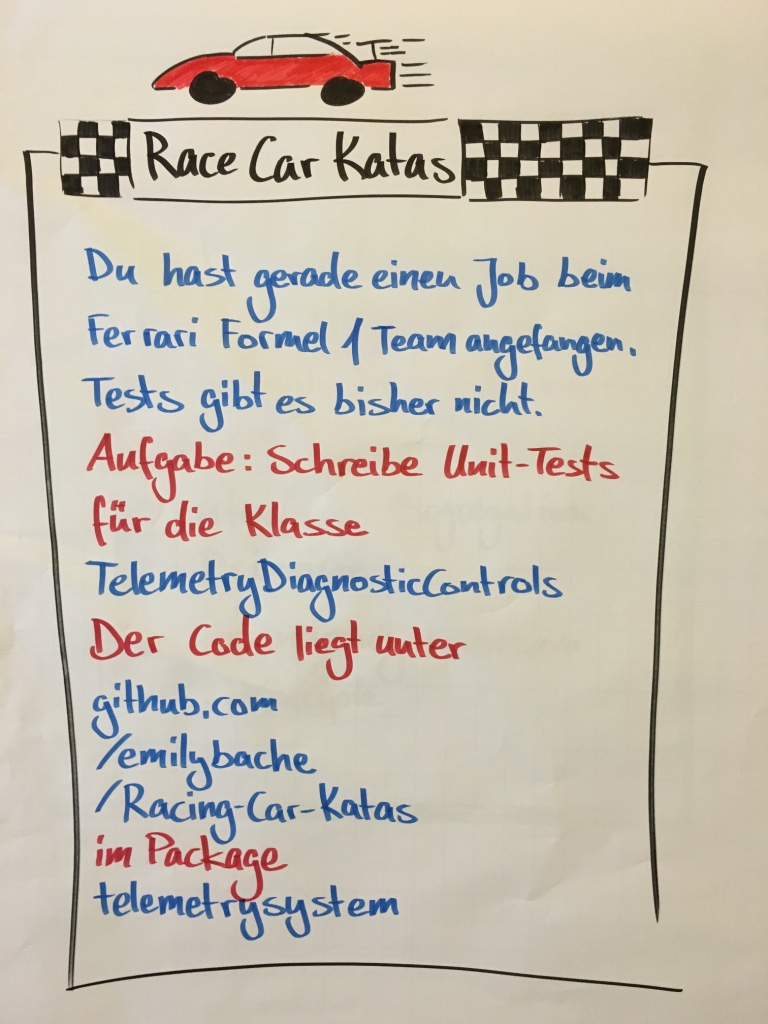 Race Car Katas
Du hast gerade einen Job beim
Ferrari Formel 1 Team angefangen.
Tests gibt es bisher nicht.
Aufgabe: Schreibe Unit-Tests
für die Klasse
TelemetryDiagnosticControls
Der Code liegt unter
github.com
/emilybache
/Racing-Car-Katas
im Package
telemetrysystem